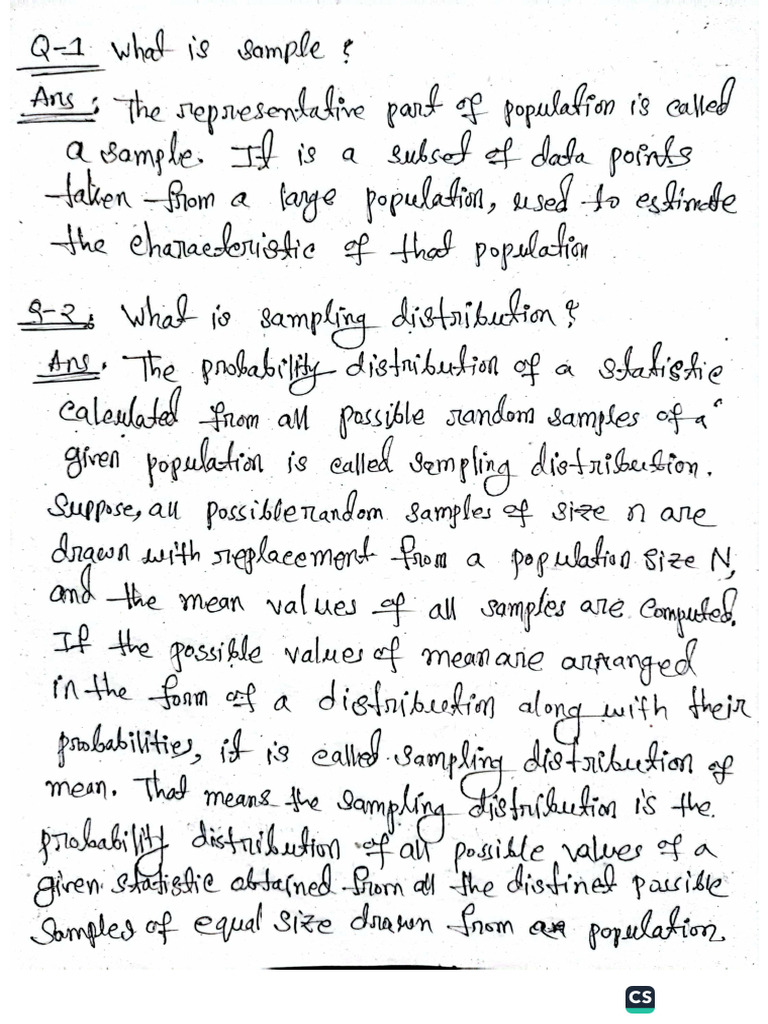 Q-1 What is sample ?
Ans: The representative part of population is called
a sample. It is a subset of data points
taken from a large population, used to estimate
the characteristic of that population
Q-2: What is sampling distribution?
Ans. The probability distribution of a statistic
calculated from all possible random samples of a
given population is called sampling distribution.
Suppose, all possible random samples of size n are
drawn with replacement from a population size N,
and the mean values of all samples are computed.
If the possible values of mean are arranged
in the form of a distribution along with their
probabilities, it is called sampling distribution of
mean. That means the sampling distribution is the
probability distribution of all possible values of a
given statistic obtained from all the distinct possible
samples of equal size drawn from population.
CS